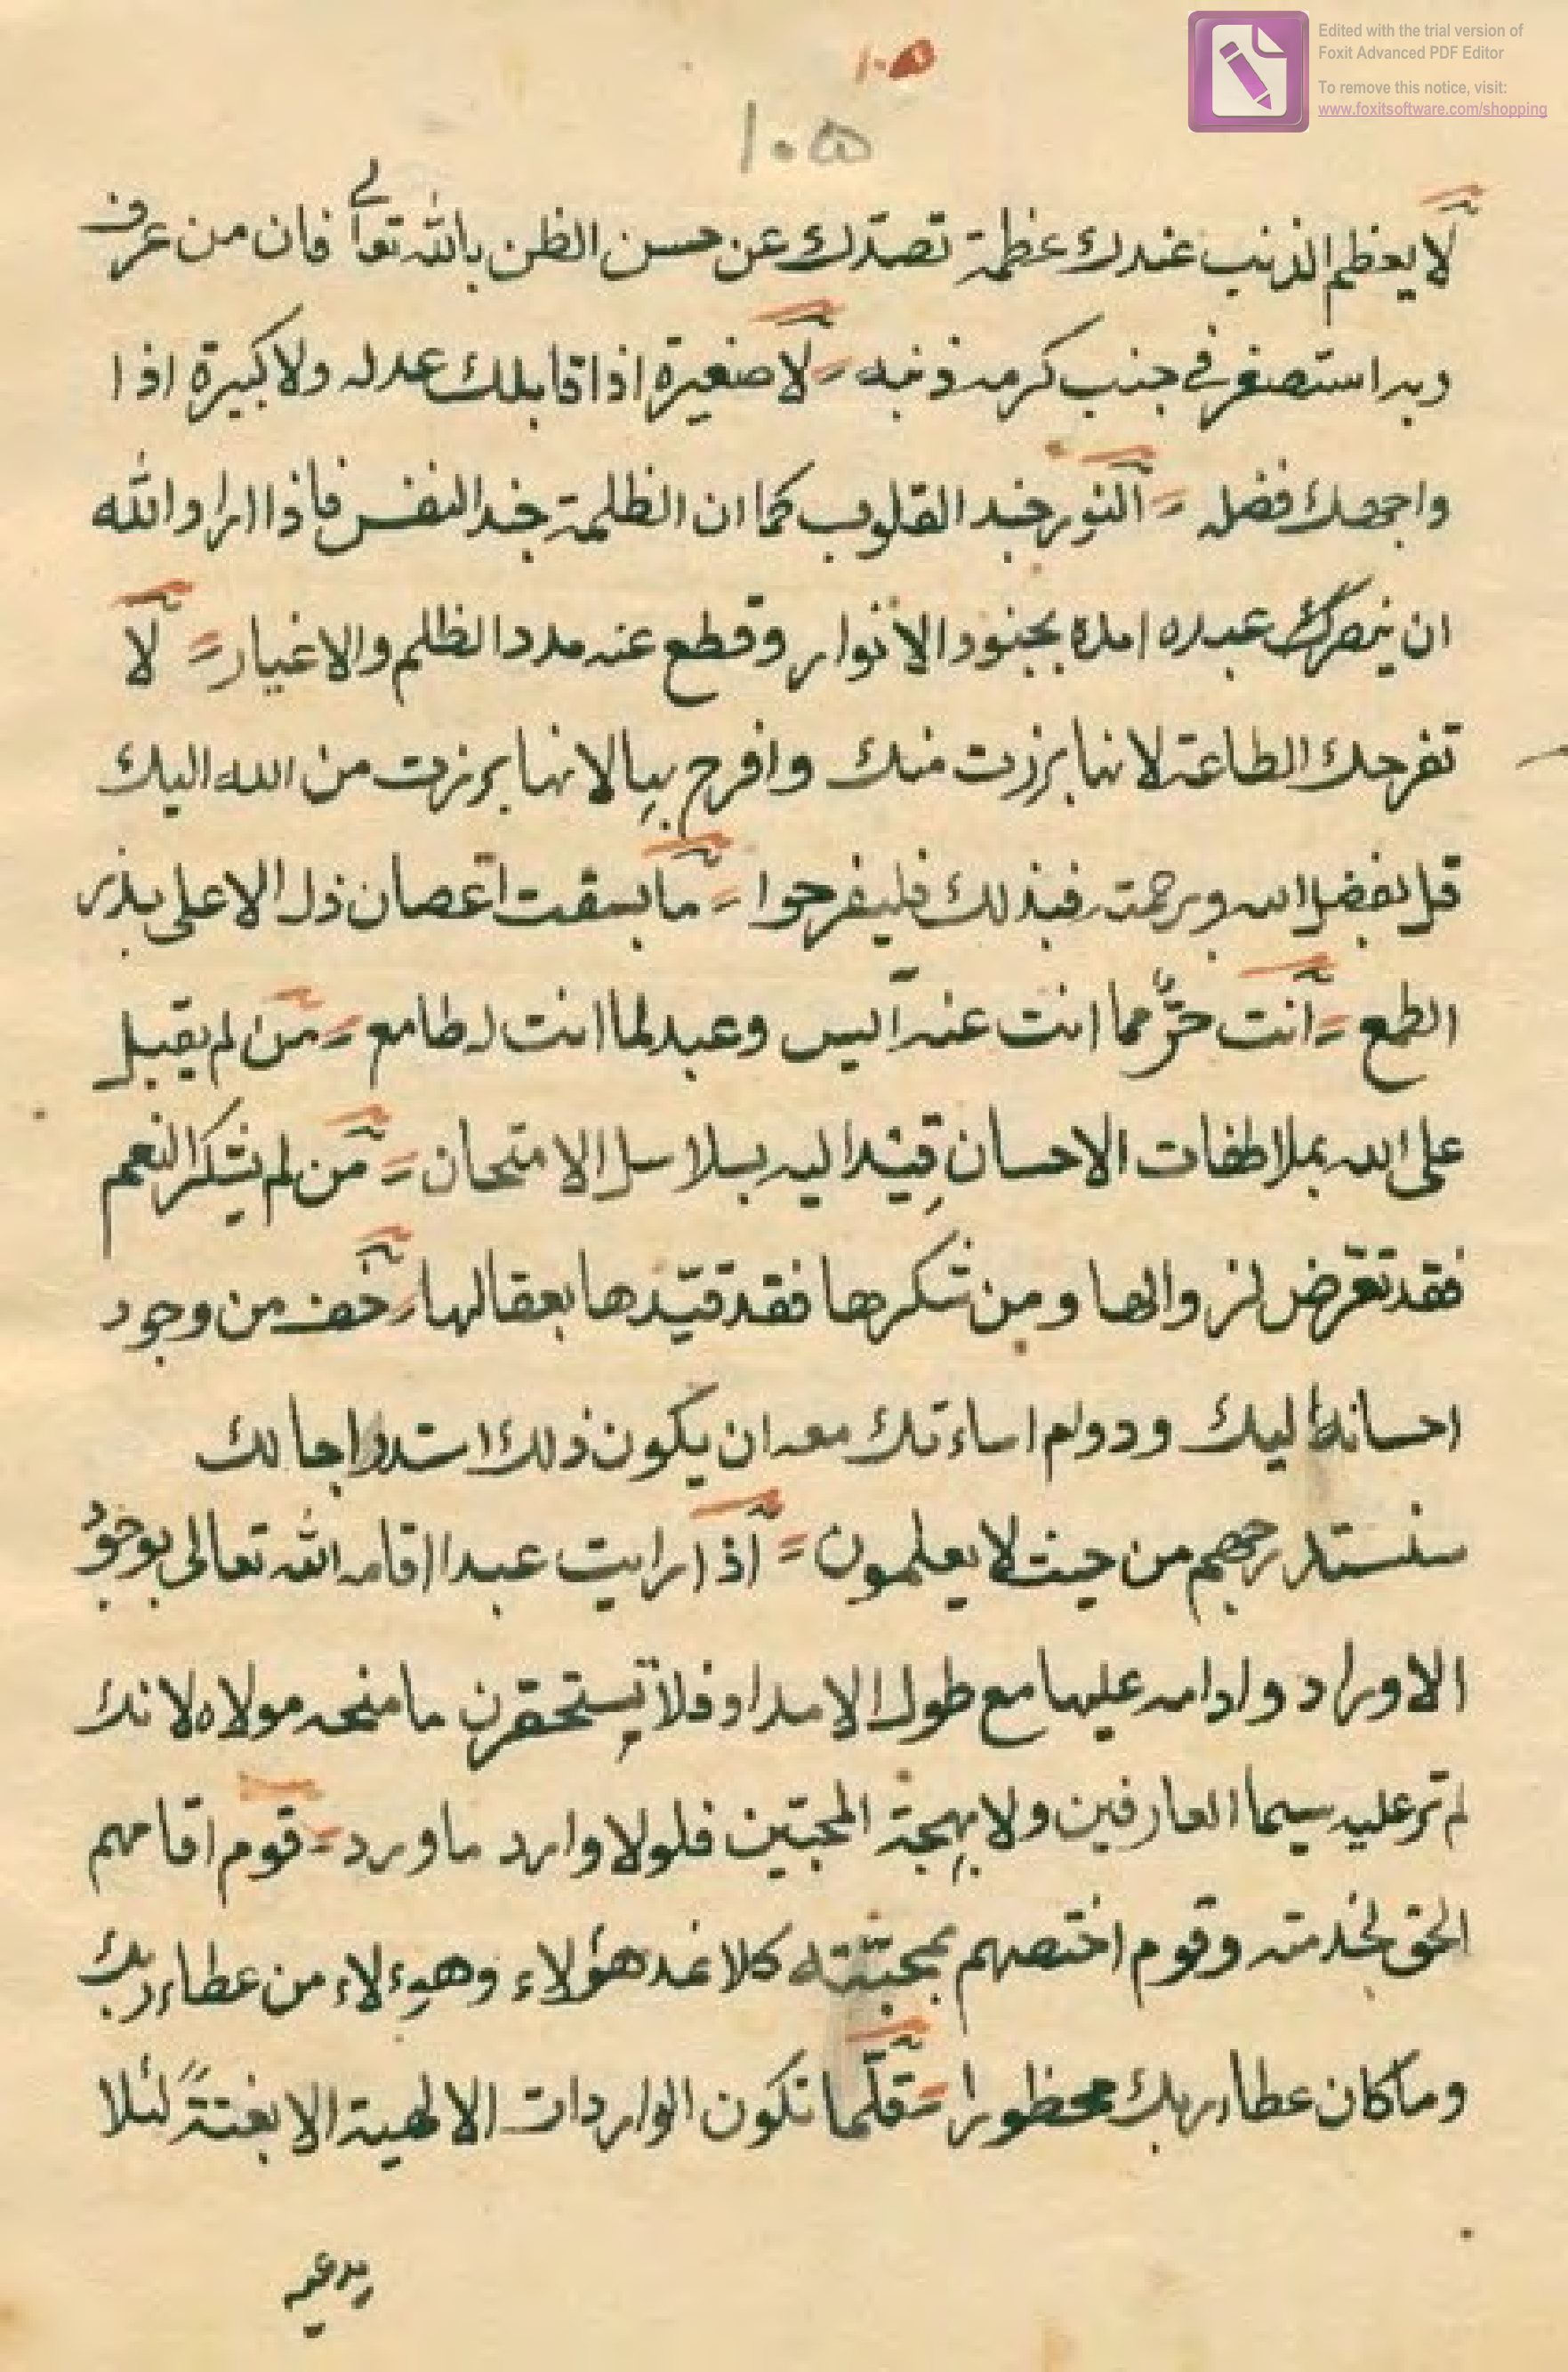 Edited with the trial version of
Foxit Advanced PDF Editor
To remove this notice, visit:
www.foxitsoftware.com/shopping
١٠٥
١٠٥
لا يعظم الذنب عندك عظمة تصدّك عن حسن الظن بالله تعالى فان من عرف
ربه استصغر في جنب كرمه ذنبه = لا صغيرة اذا قابلك عدله ولا كبيرة اذا
واجهك فضله = النور جند القلوب كما ان الظلمة جند النفس فاذا اراد الله
ان ينصرك عبده امده بجنود الانوار وقطع عنه مدد الظلم والاغيار = لا
تفرحك الطاعة لانها برزت منك وافرح بها لانها برزت من الله اليك
قل بفضل الله وبرحمته فبذلك فليفرحوا = ما بسقت اغصان ذل الا على بذر
الطمع = انت حرٌّ مما انت عنه آيس وعبد لما انت له طامع = من لم يقبل
على الله بملاطفات الاحسان قِيْد اليه بسلاسل الامتحان = من لم يشكر النعم
فقد تعرّض لزوالها ومن شكرها فقد قيّدها بعقالها = خف من وجود
احسانه اليك ودوام اساءتك معه ان يكون ذلك استدراجا لك
سنستدرجهم من حيث لا يعلمون = اذا رايت عبدا اقامه الله تعالى بوجود
الاوراد وادامه عليها مع طول الامداد فلا تستحقرن ما منحه مولاه لانك
لم تر عليه سيما العارفين ولا بهجة المحبّين فلولا وارد ما ورد = قوم اقامهم
الحق لخدمته وقوم اختصهم بمحبّته كلا نمد هؤلاء وهؤلاء من عطاء ربك
وما كان عطاء ربك محظورا = قلّما تكون الواردات الالهية الا بغتةً لئلا
يدعيه